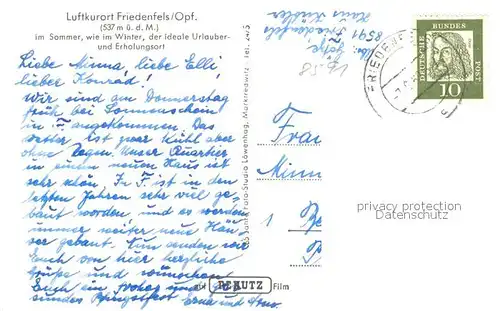 Luftkurort Friedenfels/Opf.
(537 m ü. d. M.)
im Sommer, wie im Winter, der ideale Urlauber-
und Erholungsort
Liebe Minna, liebe Elli,
lieber Konrad!
Wir sind am Donnerstag
früh bei Sonnenschein
in F. angekommen. Das
Wetter ist zwar kühl aber
ohne Regen. Unser Quartier
in einem neuen Haus ist
sehr schön. In F. ist in den
letzten Jahren sehr viel ge-
baut worden, und es werden
immer weiter neue Häu-
ser gebaut. Nun senden wir
Euch von hier herzliche
Grüße und wünschen
Euch ein frohes und
Pfingstfest Erna und
Foto-Studio Löwenhag, Marktredwitz
Tel.
auf PERUTZ Film
8591 Friedenfels
Haus
Frau
Minn
1
DEUTSCHE BUNDESPOST
10
privacy protection
Datenschutz